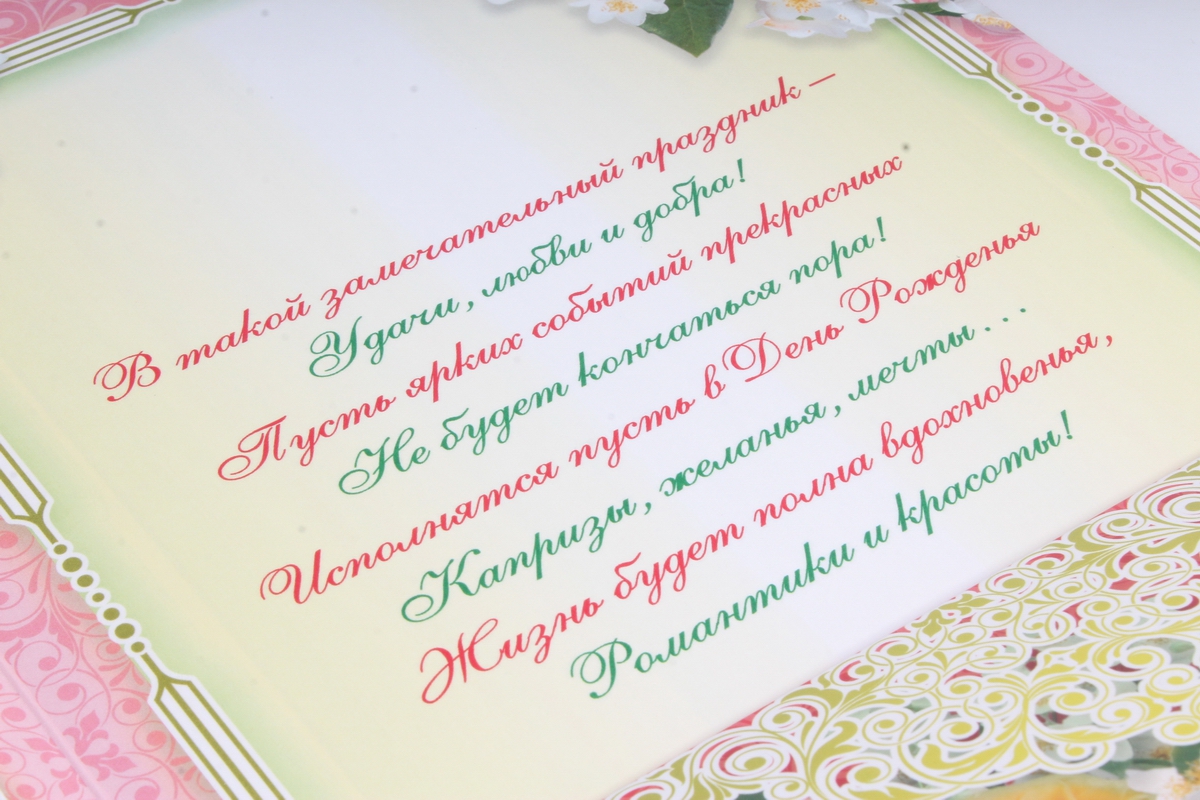 В такой замечательный праздник –
Удачи, любви и добра!
Пусть ярких событий прекрасных
Не будет кончаться пора!
Исполнятся пусть в День Рожденья
Капризы, желанья, мечты...
Жизнь будет полна вдохновенья,
Романтики и красоты!